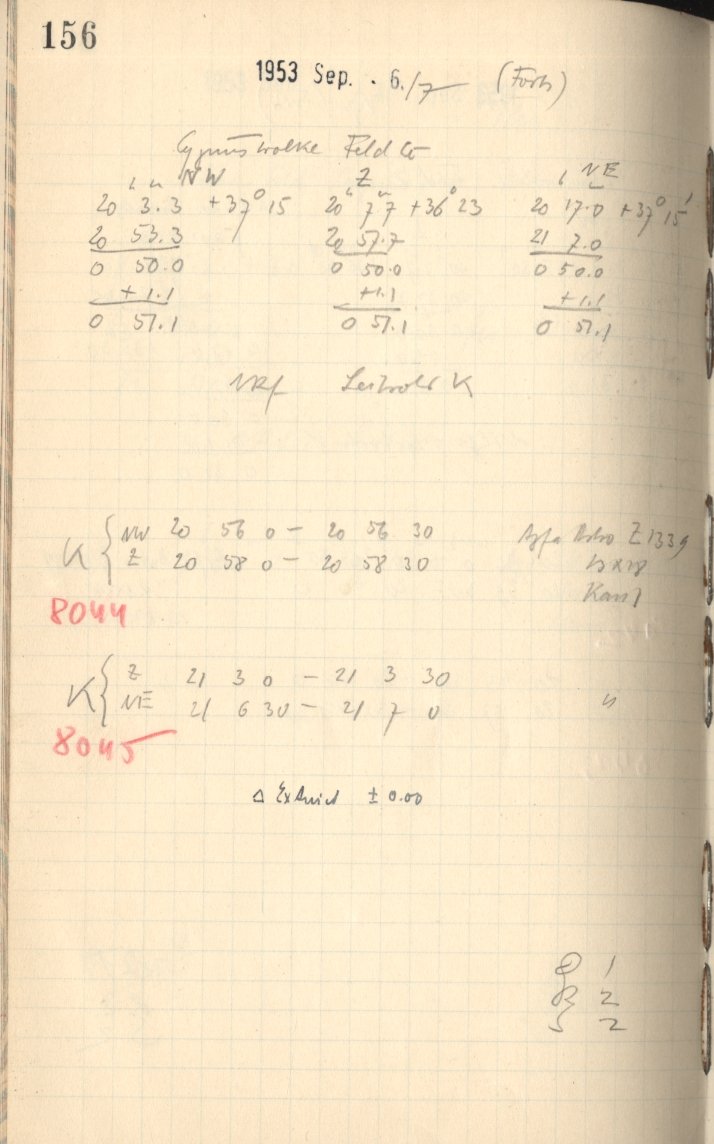 156
1953 Sep. - 6./7 (Forts)
Cygnuswolke Feld
h m NW Z h m NE
20 3.3 +37° 15 20 h 7 m 7 +36° 23 20 17.0 +37° 15'
20 53.3 20 57.7 21 7.0
0 50.0 0 50.0 0 50.0
+1.1 +1.1 +1.1
0 51.1 0 51.1 0 51.1
K
K { NW 20 56 0 – 20 56 30 Agfa Astro Z 1339
Z 20 58 0 – 20 58 30 13x18
8044
K { Z 21 3 0 – 21 3 30
NE 21 6 30 – 21 7 0 "
8045
Δ Extinct ± 0.00
D 1
B 2
S 2